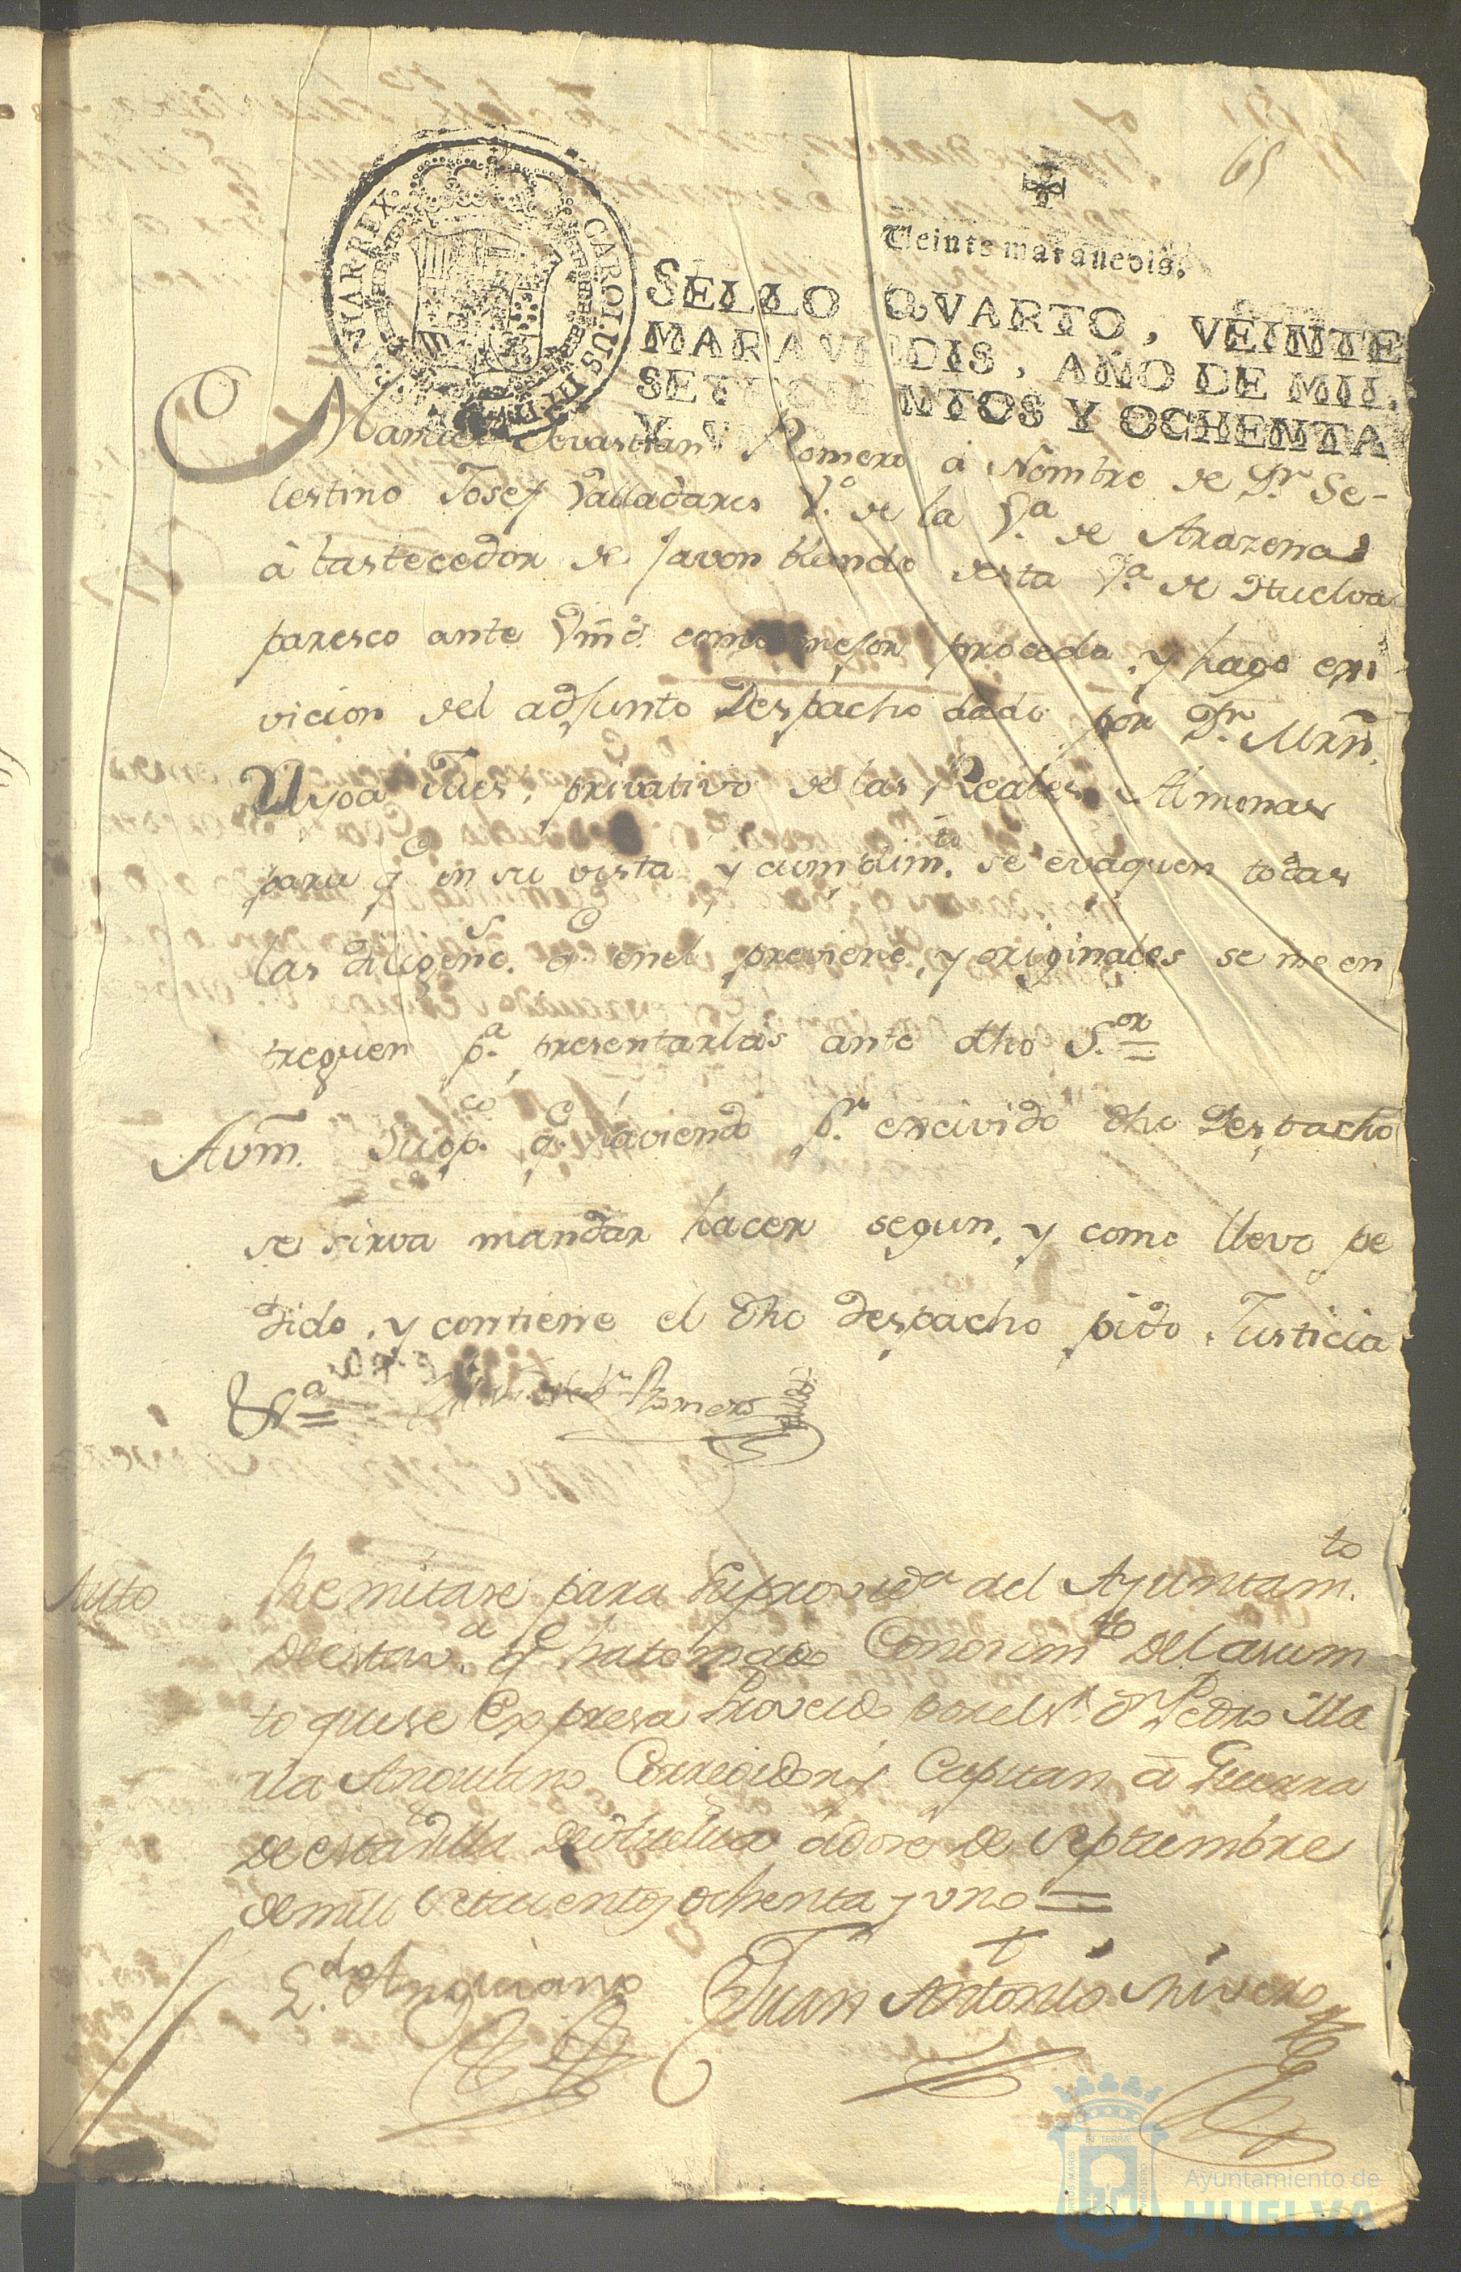 65
Veinte maravedis.
SELLO QVARTO, VEINTE
MARAVEDIS, AÑO DE MIL
SETECIENTOS Y OCHENTA
Y V
CAROLUS III D G HISPANIAR REX
Manuel Sevastian Romero â Nombre de Dn. Se-
lestino Josef Valladares Vo. de la Va. de Arazena
âbastecedor de Javon blando desta Va. de Huelva
paresco ante Vmd. como mejor proceda, y hago exi
vicion del adjunto Despacho dado por Dn. Mrn.
Ulloa Jues, privativo de las Reales Almonas
para qe en su vista y cumplimto. se evaquen todas
las diligencs. qe enel previene, y originales se me en
treguen pa. presentarlas ante dho Sor. =
Avm. Suppco. qe haviendo pr. excivido dho Despacho
se sirva mandar hacer segun, y como llevo pe
dido, y contiene el dho despacho pido Justicia
&a = Manl. Sebn. Romero
Auto
Remitase para su provida del Ayuntamto.
de esta va. qe ha tomado Conocimto del asum
to que se Expresa Proveido por el Sr. Dn Pedro Ma
ria Anguiano Corregidor y Capitan â Guerra
de esta Villa de Huelva â dose de Septiembre
de mill setecientos ochenta y uno =
Ldo. Anguiano
Juan Antonio Rivero
Ayuntamiento de
HUELVA